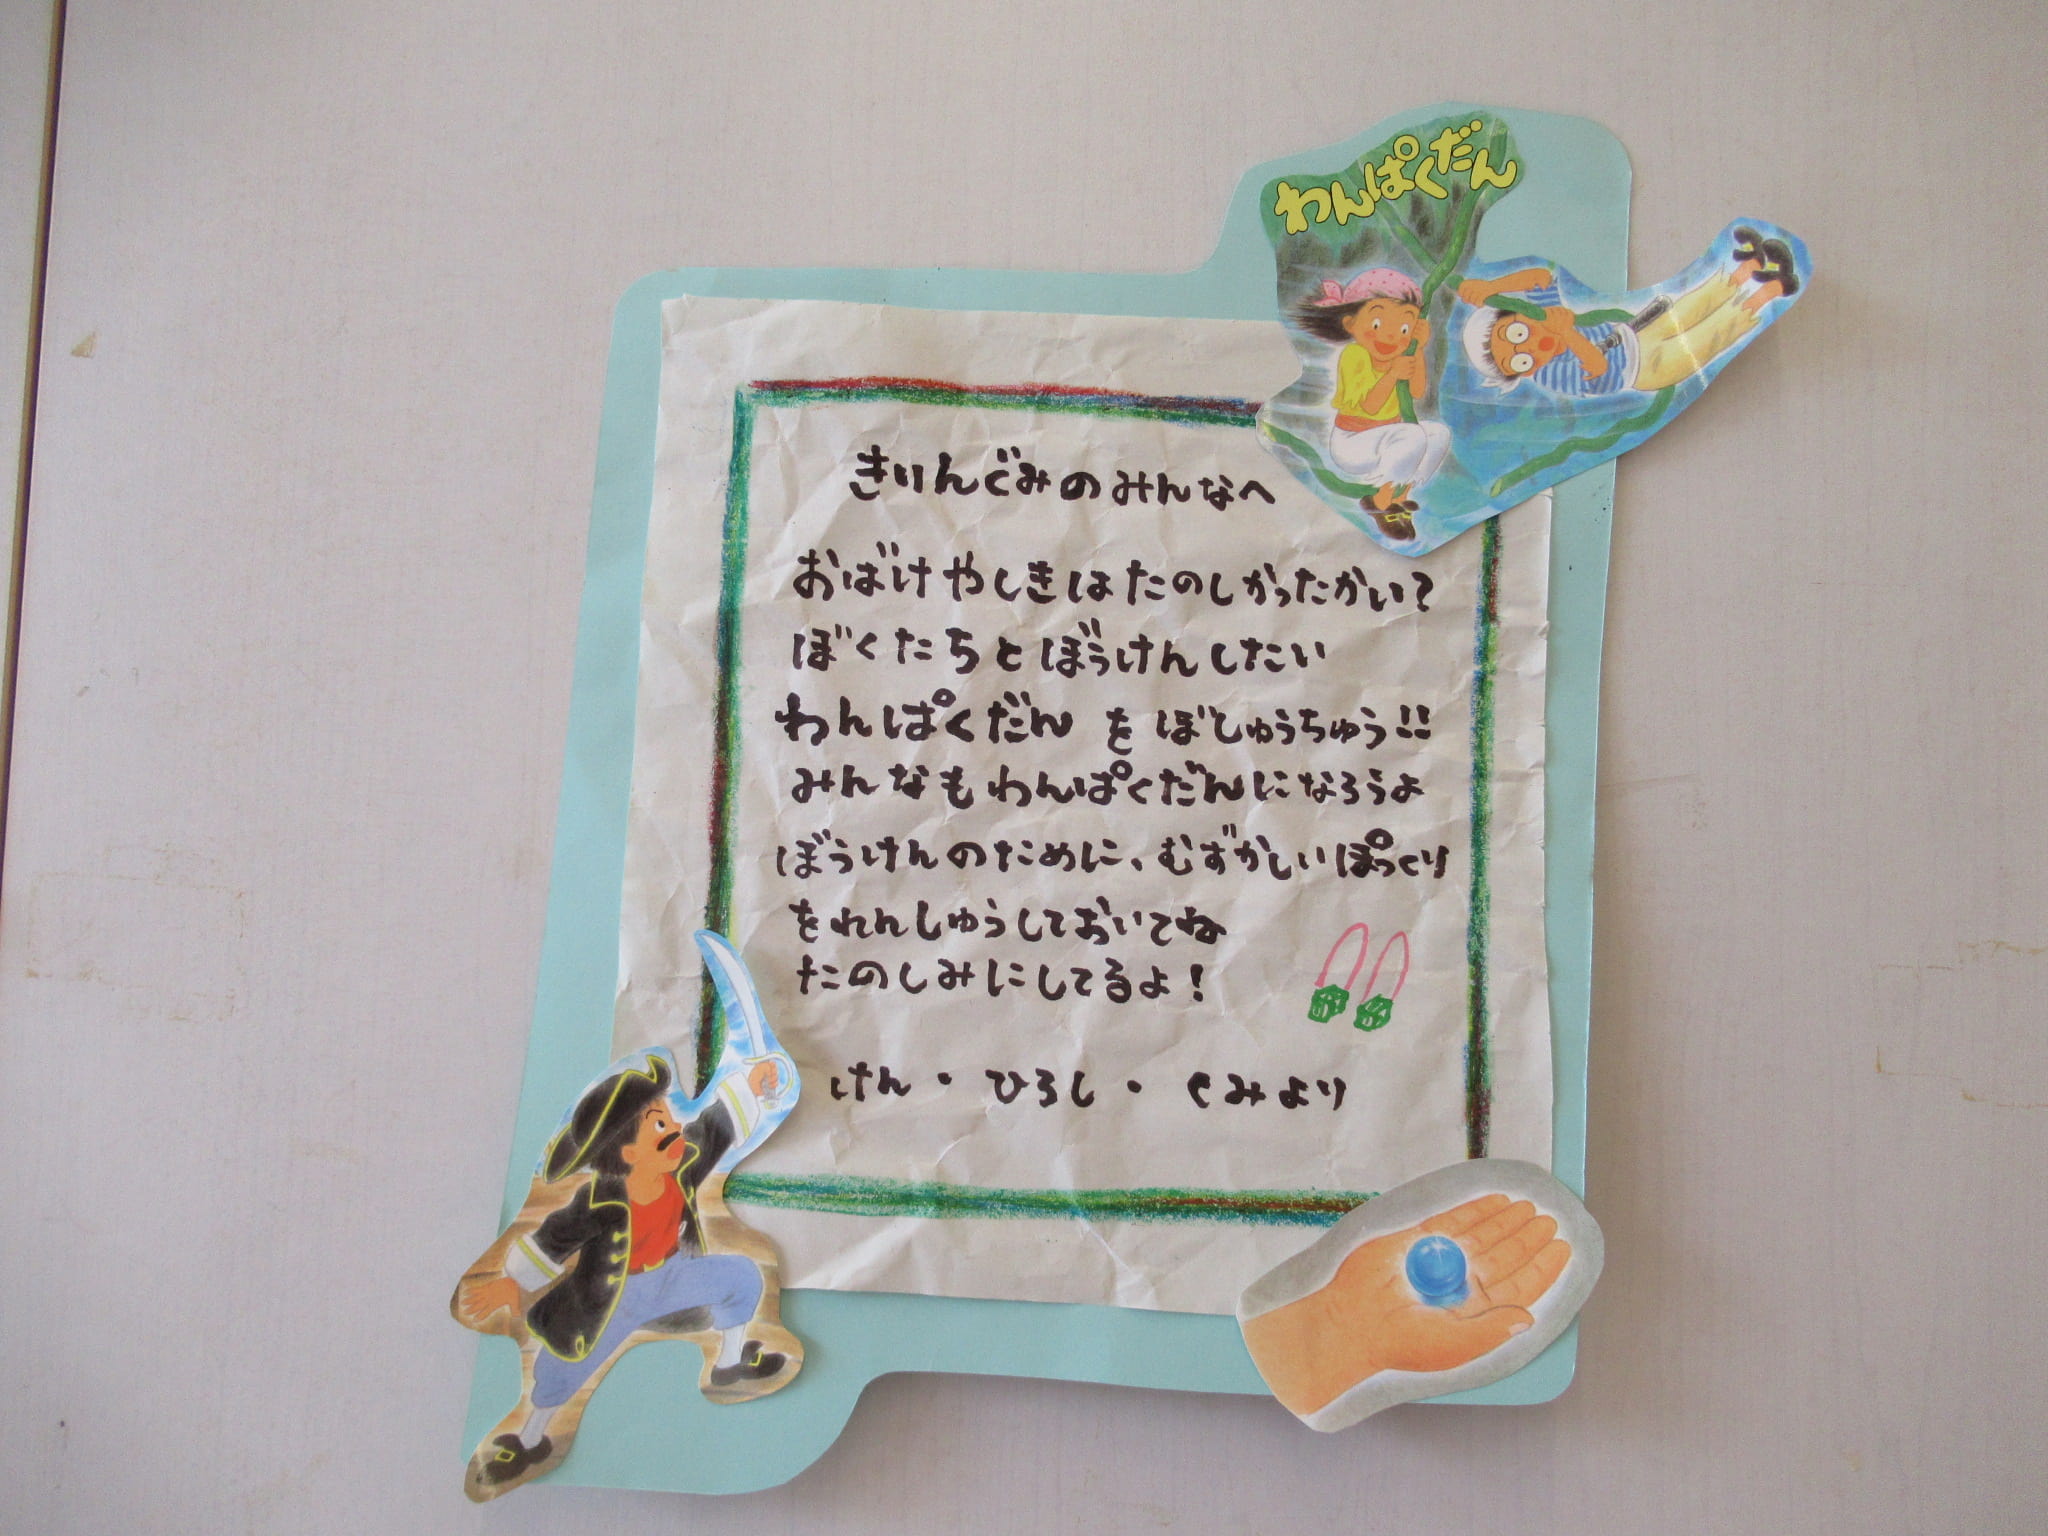 わんぱくだん
きりんぐみのみんなへ
おばけやしきはたのしかったかい?
ぼくたちとぼうけんしたい
わんぱくだん を ぼしゅうちゅう!!
みんなもわんぱくだんになろうよ
ぼうけんのために、むずかしいぽっくり
をれんしゅうしておいてね
たのしみにしてるよ!
けん・ひろし・くみより